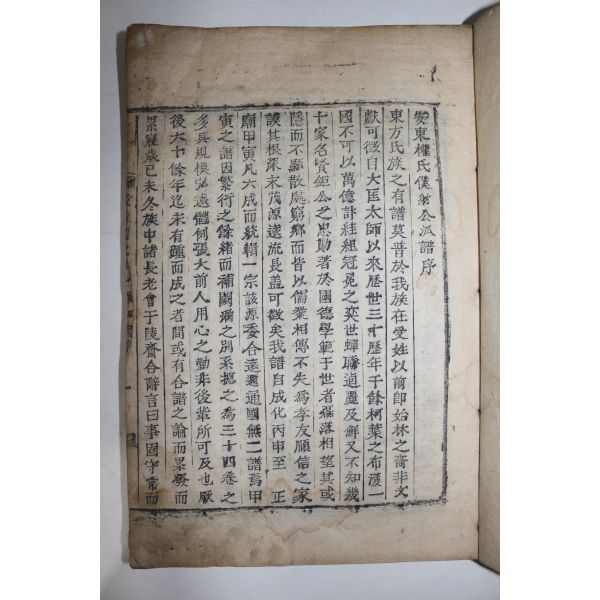 安東權氏僕射公派譜序
東方氏族之有譜莫普於我族在受姓以前卽始林之裔非文
獻可徵自大匡太師以來歷世三十歷年千餘柯葉之布濩一
國不可以萬億計絓組冠冕之奕世蟬聯遒麗及鮮又不知幾
十家名賢鉅公之忠勳著於國德學範于世者磊落相望其或
隱而不顯散處窮鄕而皆以儒業相傳不失爲孝友順信之家
謨其根深末茂源遠流長盖可徵矣我譜自成化丙申至 正
廟甲寅凡六成而統輯一宗該源委合遠邇通國無二譜焉甲
寅之譜因繁衍之餘緖而補闕 之別系摠之爲三十四卷之
多其規模弘遠體例張大前人用心之勤非後輩所可及也厥
後六十餘年迄未有踵而成之者間或有合譜之論而累發而
累寢歲己未冬族中諸長老會于陵齋合辭言曰事固守常而